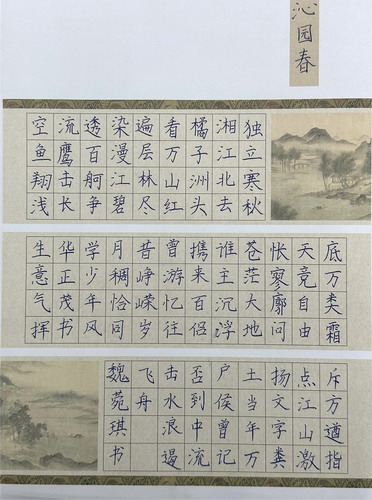 沁园春
独立寒秋
湘江北去
橘子洲头
看万山红
遍层林尽
染漫江碧
透百舸争
流鹰击长
空鱼翔浅
底万类霜
天竞自由
怅寥廓问
苍茫大地
谁主沉浮
携来百侣
曾游忆往
昔峥嵘岁
月稠恰同
学少年风
华正茂书
生意气挥
斥方遒指
点江山激
扬文字粪
土当年万
户侯曾记
否到中流
击水浪遏
飞舟
魏菀琪书